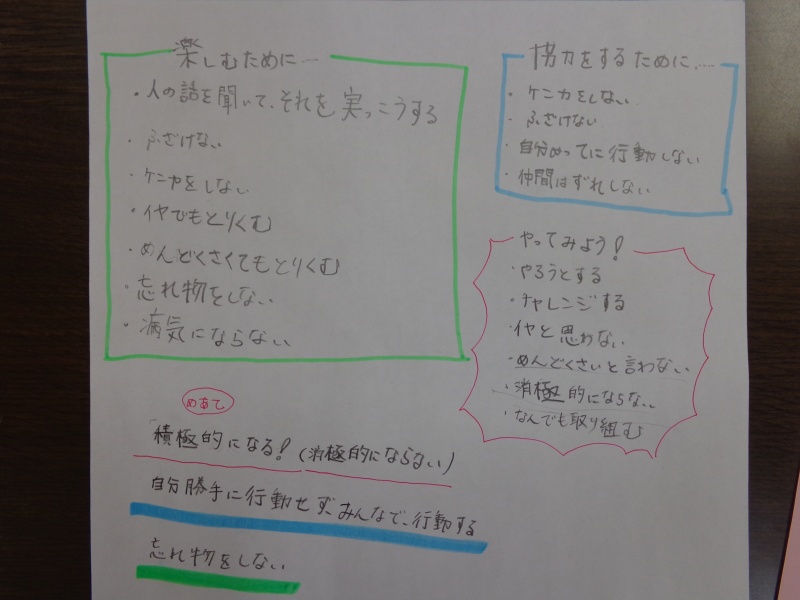 楽しむために…
・人の話を聞いて、それを実っこうする
・ふざけない
・ケンカをしない
・イヤでもとりくむ
・めんどくさくてもとりくむ
・忘れ物をしない
・病気にならない
協力をするために…
・ケンカをしない
・ふざけない
・自分めってに行動しない
・仲間はずれしない
やってみよう!
・やろうとする
・チャレンジする
・イヤと思わない
・めんどくさいと言わない
・消極的にならない
・なんでも取り組む
めあて
積極的になる!(消極的にならない)
自分勝手に行動せず、みんなで、行動する
忘れ物をしない